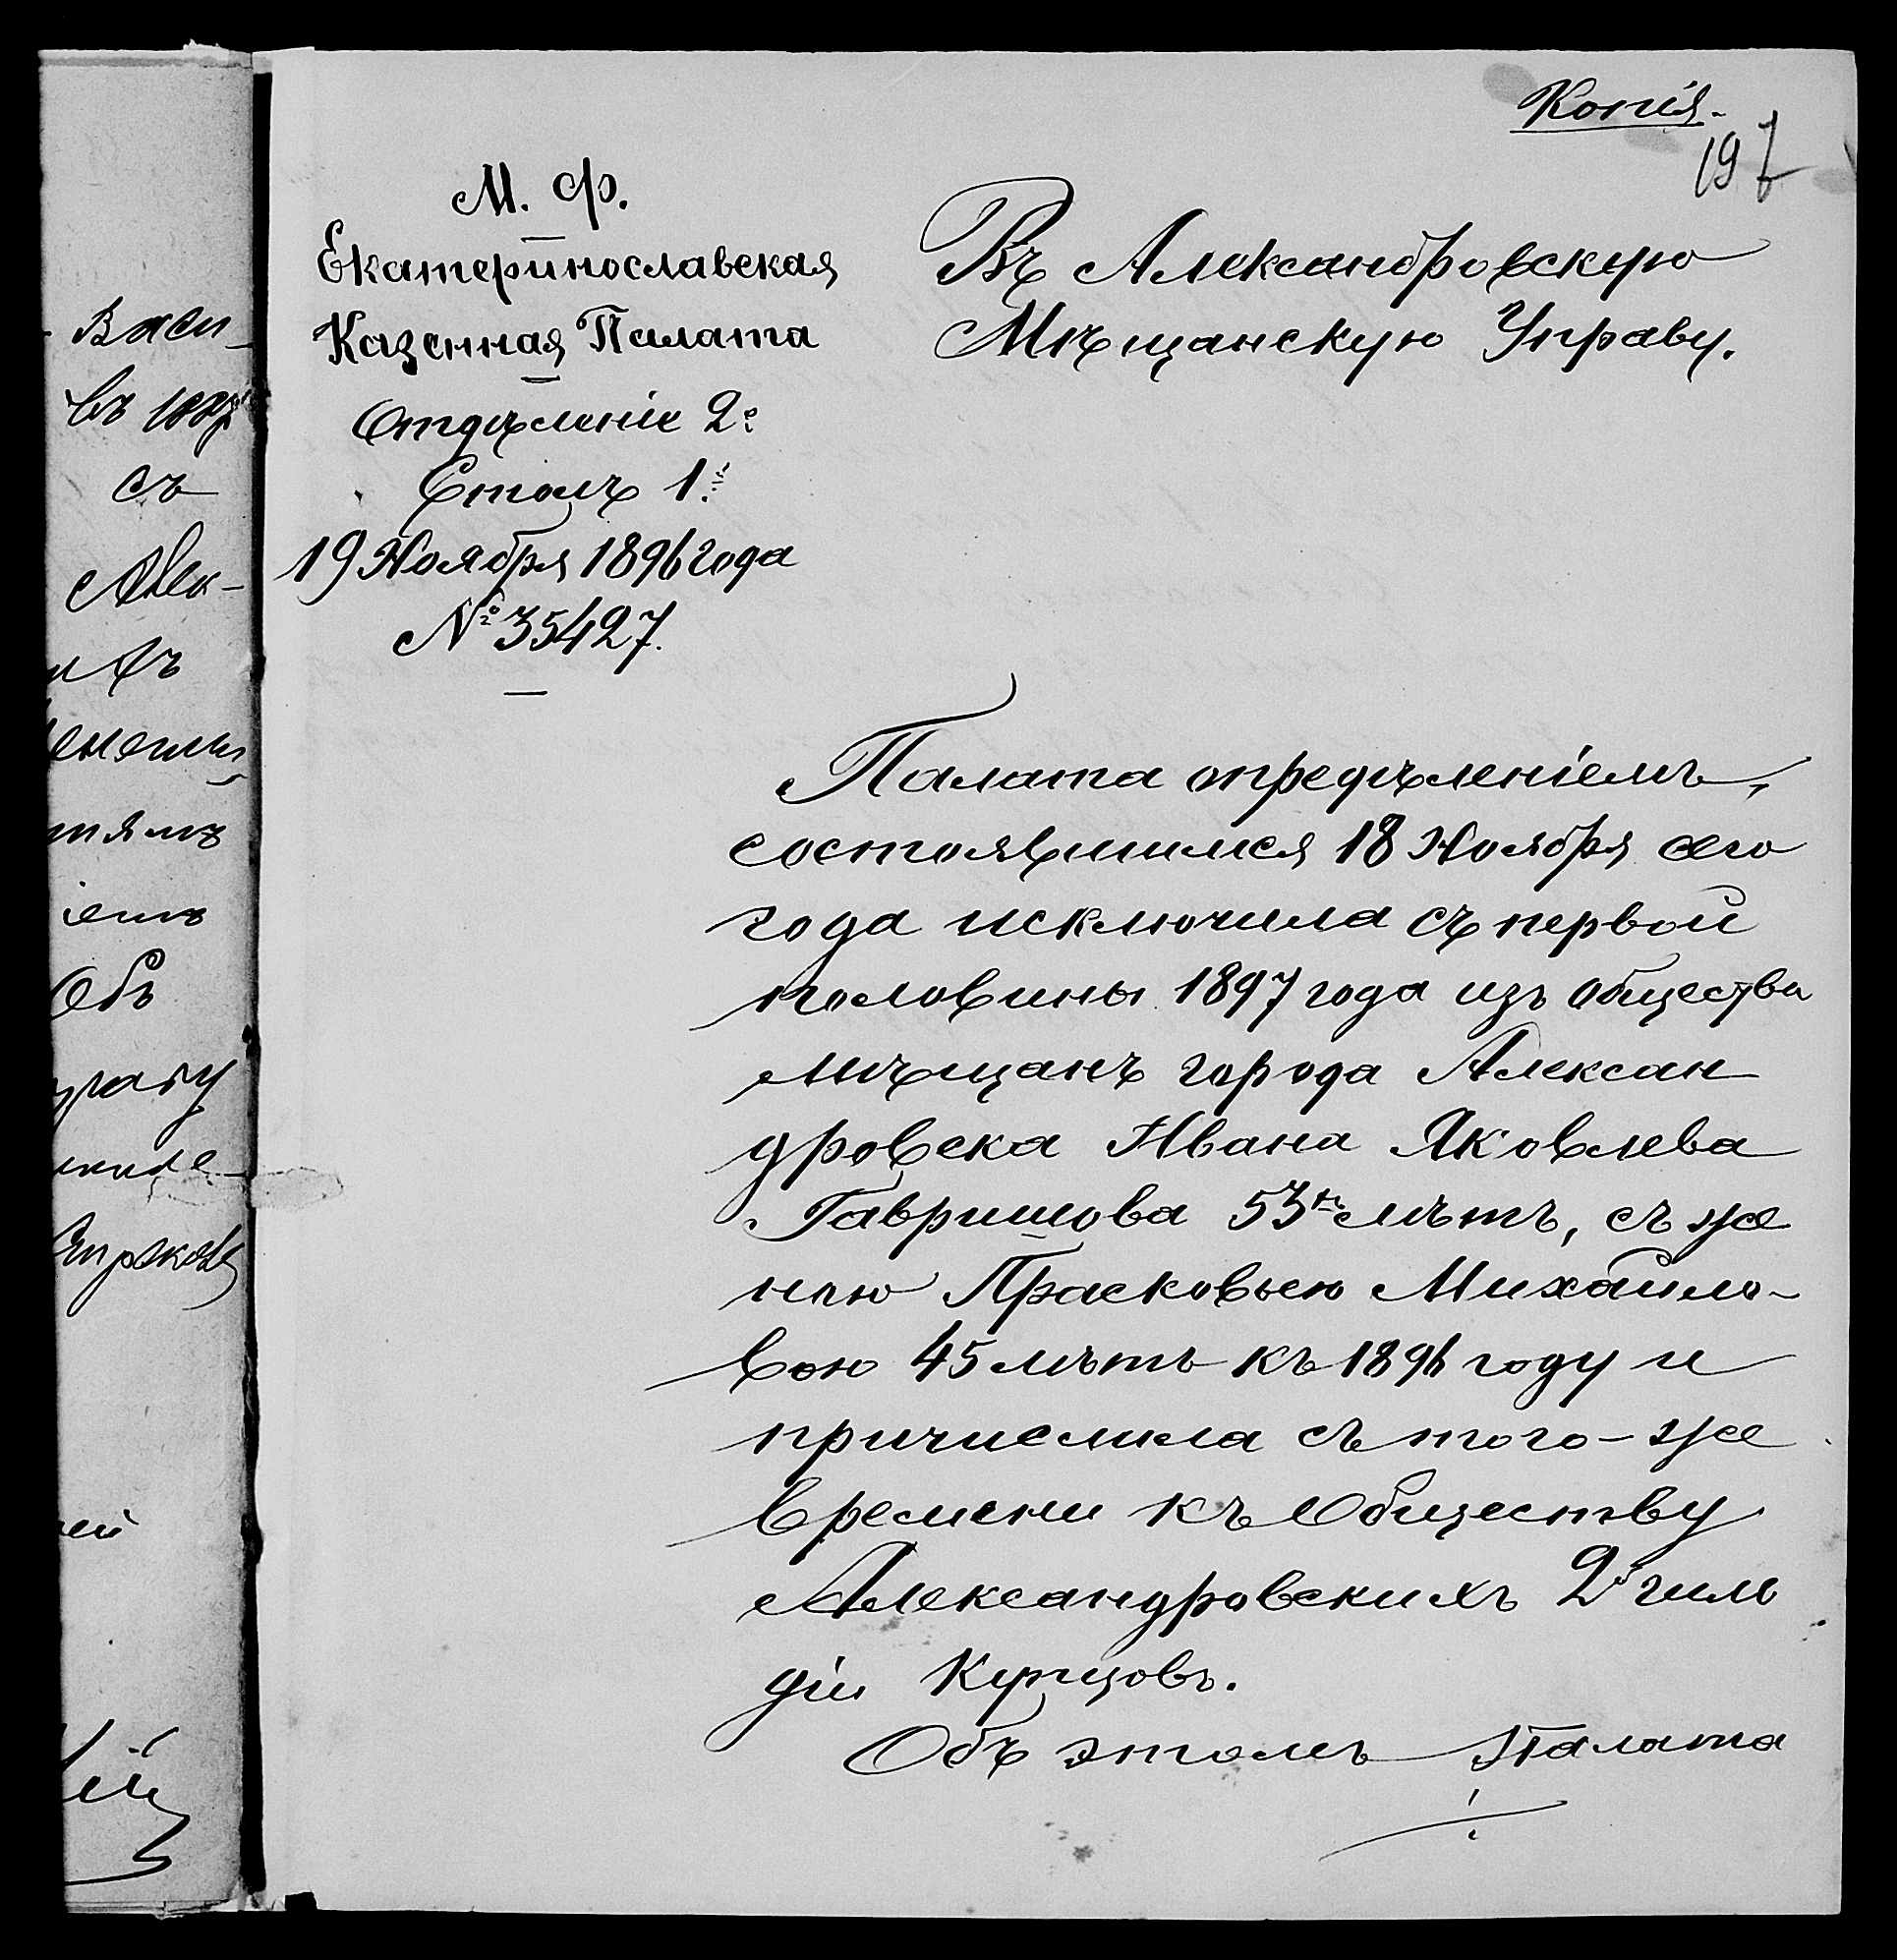 Васи-
въ 188
съ
Алек-
Объ
Копія.
197
М. Ф.
Екатеринославская
Казенная Палата
Отдѣленіе 2е
Столъ 1й
19 Ноября 1896 года
№ 35427.
Въ Александровскую
Мѣщанскую Управу.
Палата опредѣленіемъ,
состоявшимся 18 Ноября сего
года исключила съ первой
половины 1897 года изъ общества
мѣщанъ города Алексан
дровска Ивана Яковлева
Гавришова 53хъ лѣтъ, съ же
ною Прасковьею Михайло-
вою 45 лѣтъ къ 1896 году и
причислила съ того-же
времени къ обществу
Александровскихъ 2й гиль
діи купцовъ.
Объ этомъ Палата